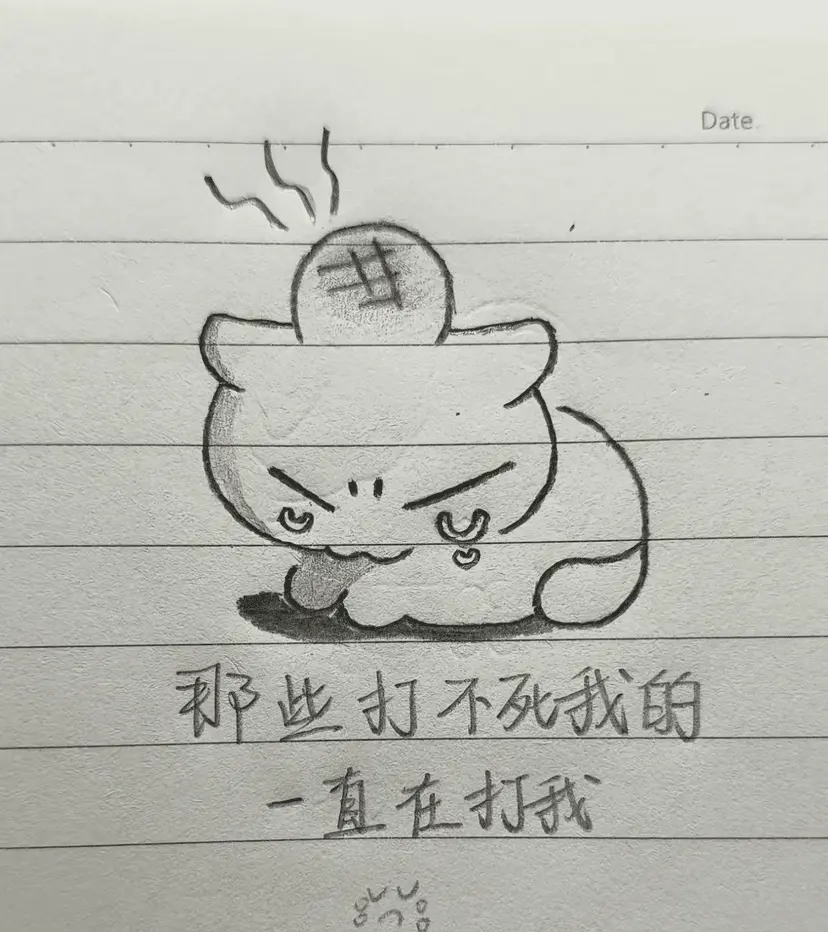 Date
那些打不死我的
一直在打我